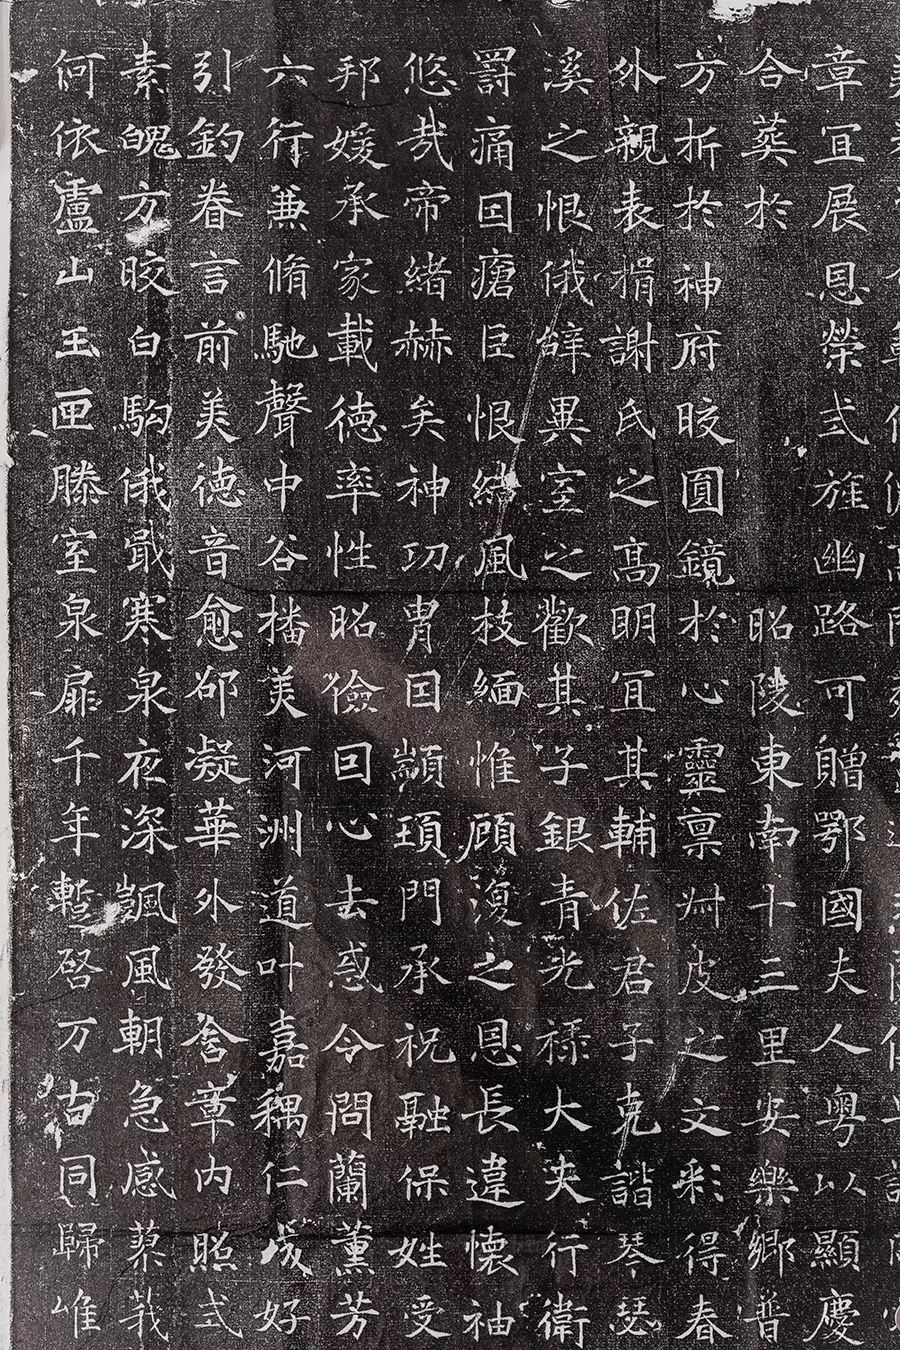 章宜展恩榮式旌幽路可贈鄂國夫人粤以顯慶
合葬於昭陵東南十三里安樂鄉普
方折於神府晈圓鏡於心靈禀丱皮之文彩得春
外親表捐謝氏之高明宜其輔佐君子克諧琴瑟
溪之恨俄辭異室之歡其子銀青光祿大夫行衛
罸痛因瘡巨恨結風枝緬惟顧復之恩長違懷袖
悠哉帝緒赫矣神功胄因顓頊門承祝融保姓受
邦媛承家載德率性昭儉回心去惑令問蘭薰芳
六行兼脩馳聲中谷播美河洲道叶嘉耦仁成好
引釣眷言前美德音愈邵凝華外發含章内照式
素魄方晈白駒俄戢寒泉夜深颯風朝急感蓼莪
何依廬山玉匣滕室泉扉千年蹔啓万古同歸唯